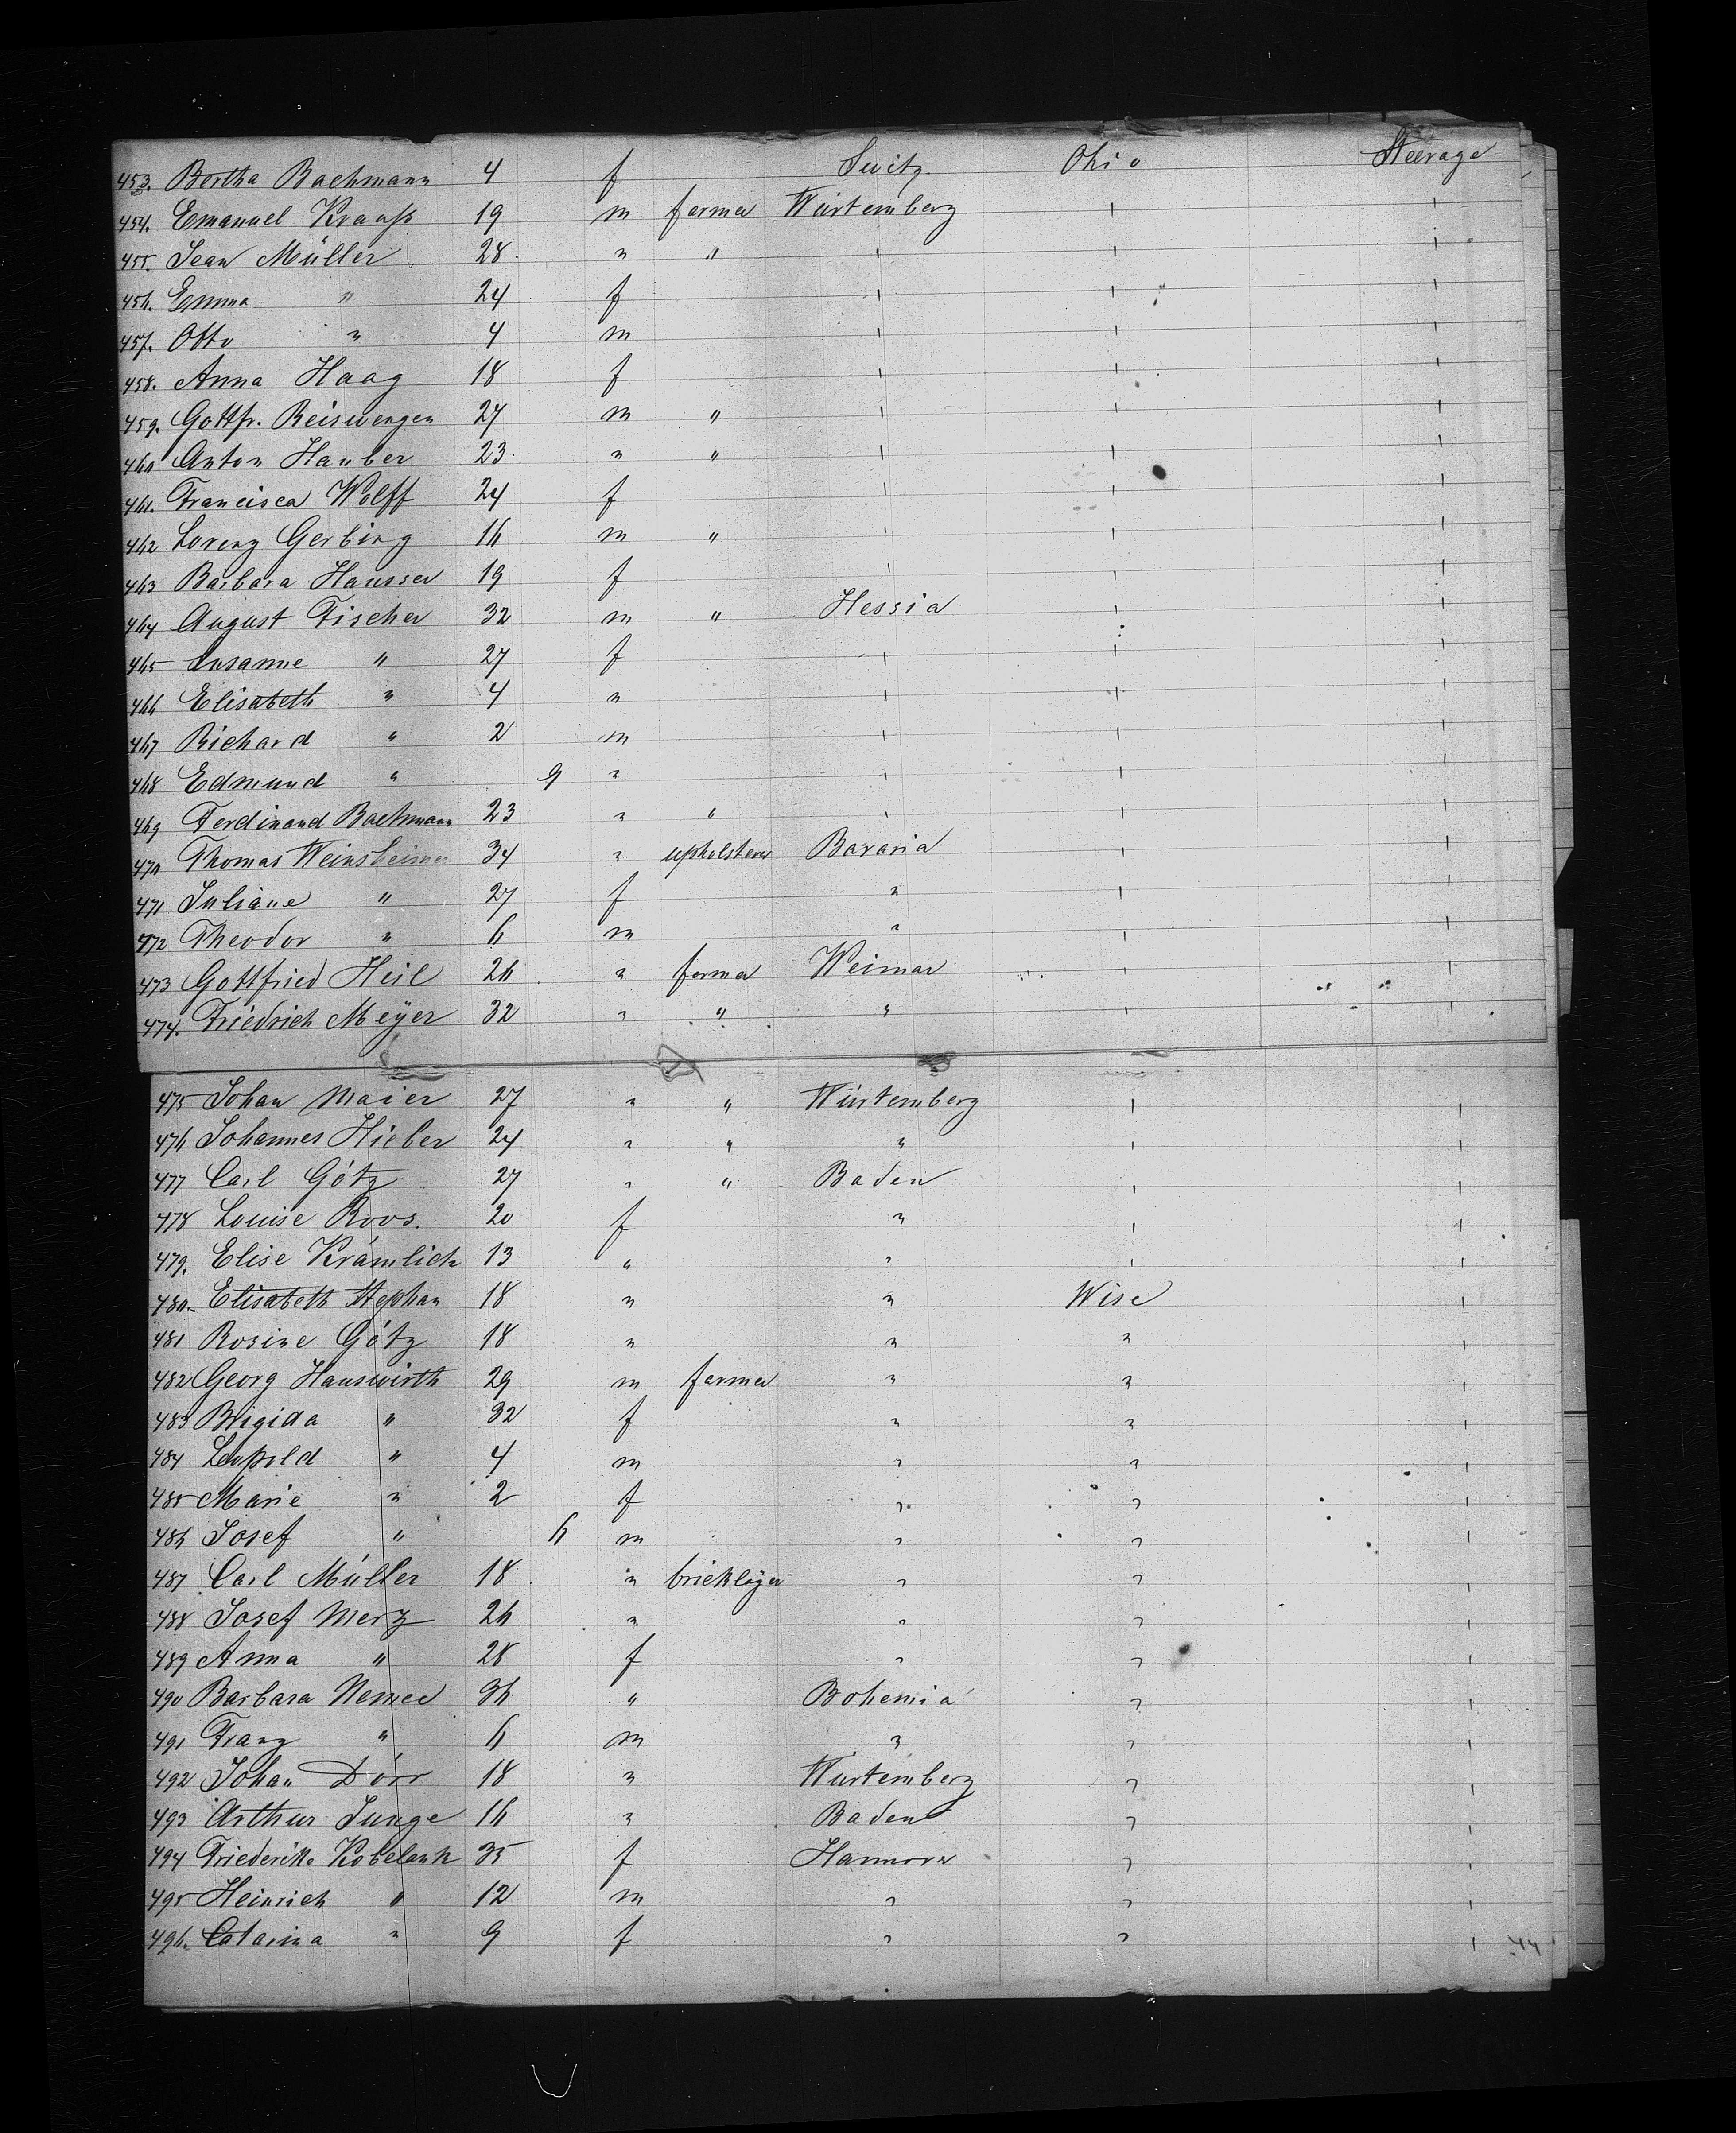 453. Bertha Bachmann 4 f Switz. Ohio Steerage
454. Emanuel Krauß 19 m farmer Würtemberg ' '
455. Jean Müller 28 " " ' ' '
456. Emma " 24 f ' ' '
457. Otto " 4 m ' ' '
458. Anna Haag 18 f ' ' '
459. Gottfr. Reiswengen 27 m " ' ' '
460 Anton Hauber 23 " " ' ' '
461. Francisca Wolff 24 f ' ' '
462 Lorenz Gerbing 16 m " ' ' '
463 Barbara Hausser 19 f ' ' '
464 August Fischer 32 m " Hessia ' '
465 Susanne " 27 f ' ' '
466 Elisabeth " 4 " ' ' '
467 Richard " 2 m ' ' '
468 Edmund " 9 " ' ' '
469 Ferdinand Bachmann 23 " " ' ' '
470 Thomas Weinsheimer 34 " upholsterer Bavaria ' '
471 Juliane " 27 f " ' '
472 Theodor " 6 m " ' '
473 Gottfried Heil 26 " farmer Weimar ' '
474. Friedrich Meÿer 32 " " " ' '
475 Johan Maier 27 " " Würtemberg ' '
476 Johannes Hieber 24 " " " ' '
477 Carl Götz 27 " " Baden ' '
478 Louise Roos. 20 f " ' '
479. Elise Krämlich 13 " " ' '
480. Elisabeth Stephan 18 " " Wisc '
481 Rosine Götz 18 " " " '
482 Georg Hauswirth 29 m farmer " " '
483 Brigida " 32 f " " '
484 Leopold " 4 m " " '
485 Marie " 2 f " " '
486 Josef " 6 m " " '
487 Carl Müller 18 " bricklayer " " '
488 Josef Merz 26 " " " '
489 Anna " 28 f " " '
490 Barbara Nemec 36 " Bohemia " '
491 Franz " 6 m " " '
492 Johan Dörr 18 " Würtemberg " '
493 Arthur Junge 16 " Baden " '
494 Friederike Kobelank 35 f Hannover " '
495 Heinrich " 12 m " " '
496. Catarina " 9 f " " '
44